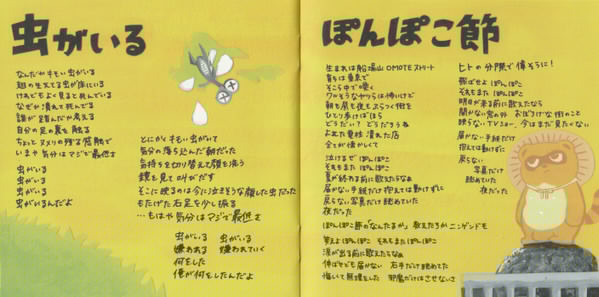 虫がいる
なんだかキモい虫がいる
翅の生えてる虫が床にいる
けれどもよく見ると死んでいる
なぜか潰れて死んでいる
誰が踏んだか考える
自分の足の裏を触る
ちょっとヌメリの残る指触で
いまや気分はマジで最低さ
虫がいる
虫がいる
虫がいる
虫がいるんだよ
とにかくキモい虫がいて
気分の落ち込んだ朝だった
気持ちを切り替えて顔を洗う
鏡を見て叫びだす
そこに映るのは今に泣きそうな顔した虫だった
もたげた右足を少し振る
…もはや気分はマジで最低さ
虫がいる 虫がいる
嫌われる 嫌われていく
何をした
俺が何をしたんだよ
ぽんぽこ節
生まれは船場山OMOTEストリート
育ちは東京で
そこら中で響く
ワルそうなヤツらは怖いけど
朝も昼も夜もぶらつく街を
ひとり歩けばほら
どうだい?どうだろうね
よれた看板 潰れた店
全てが懐かしくて
泣けるぞ ぽんぽこ
それもまた ぽんぽこ
夏が終わる前に歌えたらなぁ
届かない手紙だけ抱えては動けずに
戻らない写真だけ眺めていた
夜だった
ぽんぽこ節の「なんたるか」教えたろかニンゲンども
笑えよ ぽんぽこ それもまた ぽんぽこ
涙が出る前に歌えたらなぁ
伸ばせども届かない 右手だけ眺めてた
悔いて無理をした 邪魔だけはさせないさ
ヒトの分際で偉そうに!
飛ばせよ ぽんぽこ
それもまた ぽんぽこ
明日が来る前に歌えたなら
聞かない窓の外 おぼろげな街のこと
映らないTVショー、今はまだ見たくない
届かない手紙だけ
抱えては動けずに
戻らない
写真だけ
眺めていた
夜だった